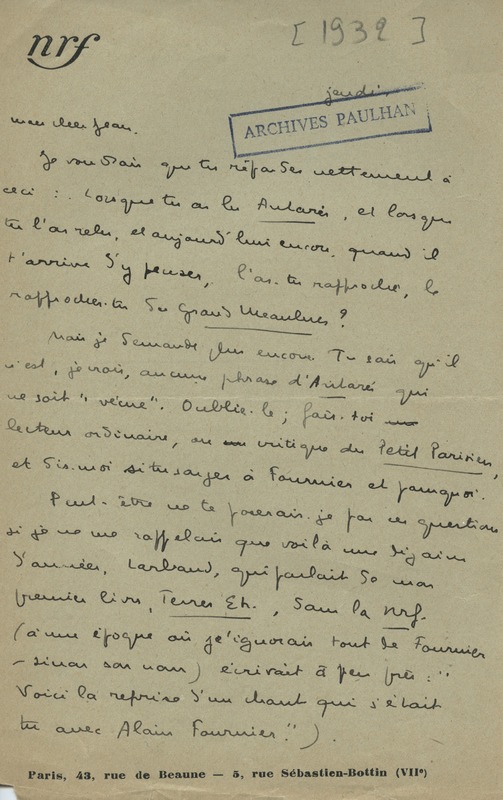 nrf
[1932]
jeudi.
ARCHIVES PAULHAN
mon cher Jean.
Je voudrais que tu répondes nettement à
ceci : Lorsque tu as lu Antarès, et lorsque
tu l'as relu, et aujourd'hui encore, quand il
t'arrive d'y penser, l'as-tu rapproché, le
rapproches-tu du Grand Meaulnes ?
Mais je demande plus encore. Tu sais qu'il
n'est, je crois, aucune phrase d'Antarès qui
ne soit "vécue". Oublie-le ; fais-toi
lecteur ordinaire, ou critique du Petit Parisien,
et dis-moi si tu songes à Fournier et pourquoi.
Peut-être ne te poserais-je pas ces questions
si je ne me rappelais que voilà une dizaine
d'années, Larbaud, qui parlait de mon
premier livre, Terres Etr., dans la nrf.
(à une époque où j'ignorais tout de Fournier
– sinon son nom) écrivait à peu près : "
Voici la reprise d'un chant qui s'était
tu avec Alain Fournier." ).
Paris, 43, rue de Beaune — 5, rue Sébastien-Bottin (VIIe)